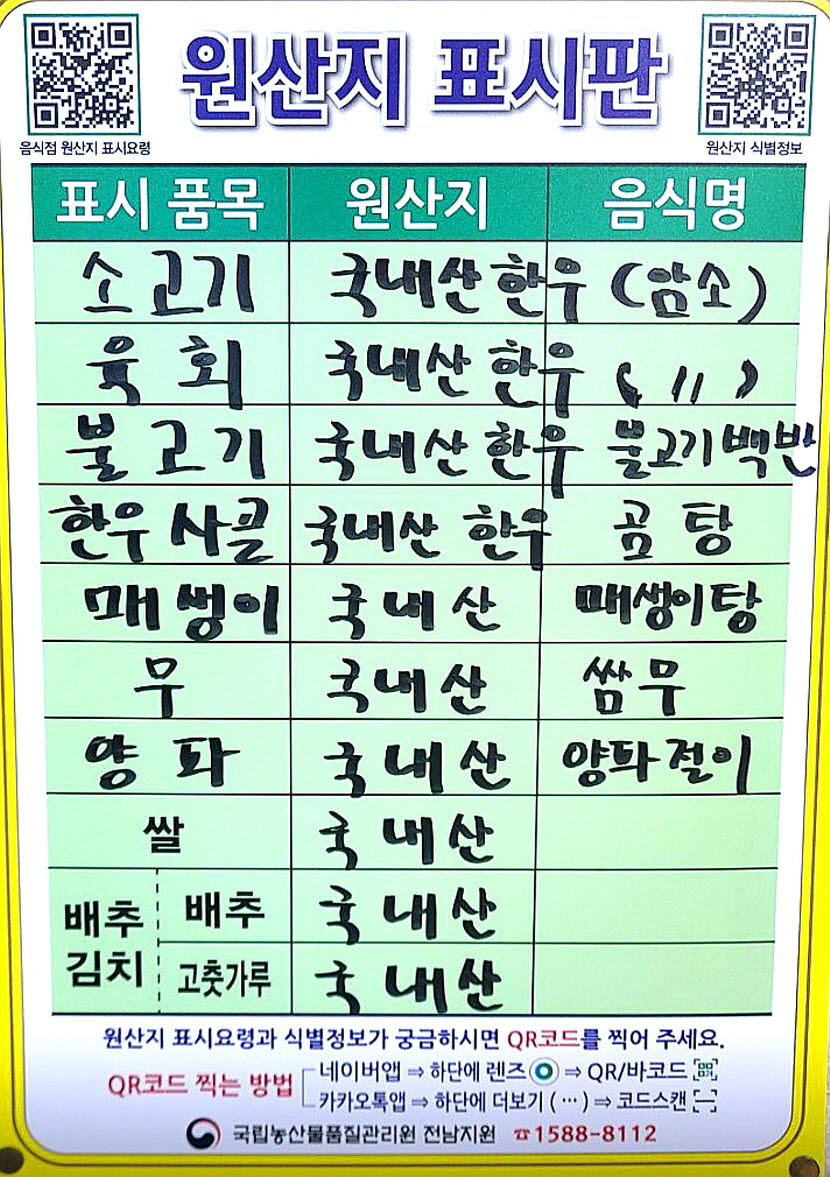 원산지 표시판
음식점 원산지 표시요령
원산지 식별정보
표시 품목 원산지 음식명
소고기 국내산 한우 (암소)
육회 국내산 한우 ( 〃 )
불고기 국내산 한우 불고기백반
한우사골 국내산 한우 곰탕
매생이 국내산 매생이탕
무 국내산 쌈무
양파 국내산 양파절이
쌀 국내산
배추김치 배추 국내산
고춧가루 국내산
원산지 표시요령과 식별정보가 궁금하시면 QR코드를 찍어 주세요.
QR코드 찍는 방법
네이버앱 ⇒ 하단에 렌즈 ⇒ QR/바코드
카카오톡앱 ⇒ 하단에 더보기 (…) ⇒ 코드스캔
국립농산물품질관리원 전남지원 ☎1588-8112